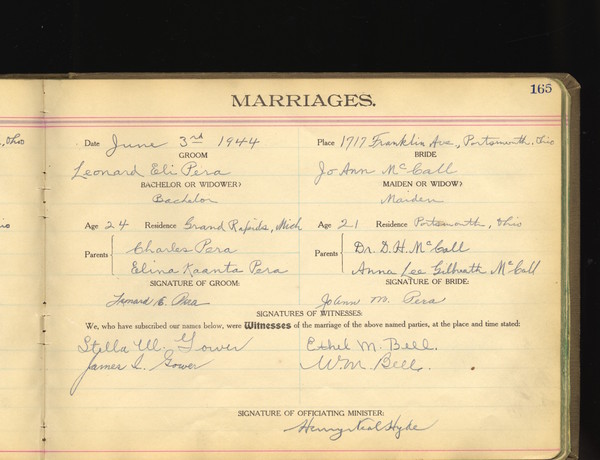 165
MARRIAGES.
, Ohio
Date June 3rd 1944 Place 1717 Franklin Ave., Portsmouth, Ohio
GROOM BRIDE
Leonard Eli Pera Jo Ann McCall
BACHELOR OR WIDOWER? MAIDEN OR WIDOW?
Bachelor Maiden
Age 24 Residence Grand Rapids, Mich Age 21 Residence Portsmouth, Ohio
Parents Charles Pera Parents Dr. D. H. McCall
Elina Kaanta Pera Anna Lee Gilbreath McCall
SIGNATURE OF GROOM: SIGNATURE OF BRIDE:
Leonard E. Pera JoAnn M. Pera
SIGNATURES OF WITNESSES:
We, who have subscribed our names below, were Witnesses of the marriage of the above named parties, at the place and time stated:
Stella W. Gower Ethel M. Bell.
James I. Gower W. M. Bell.
SIGNATURE OF OFFICIATING MINISTER:
Henry Neal Hyde